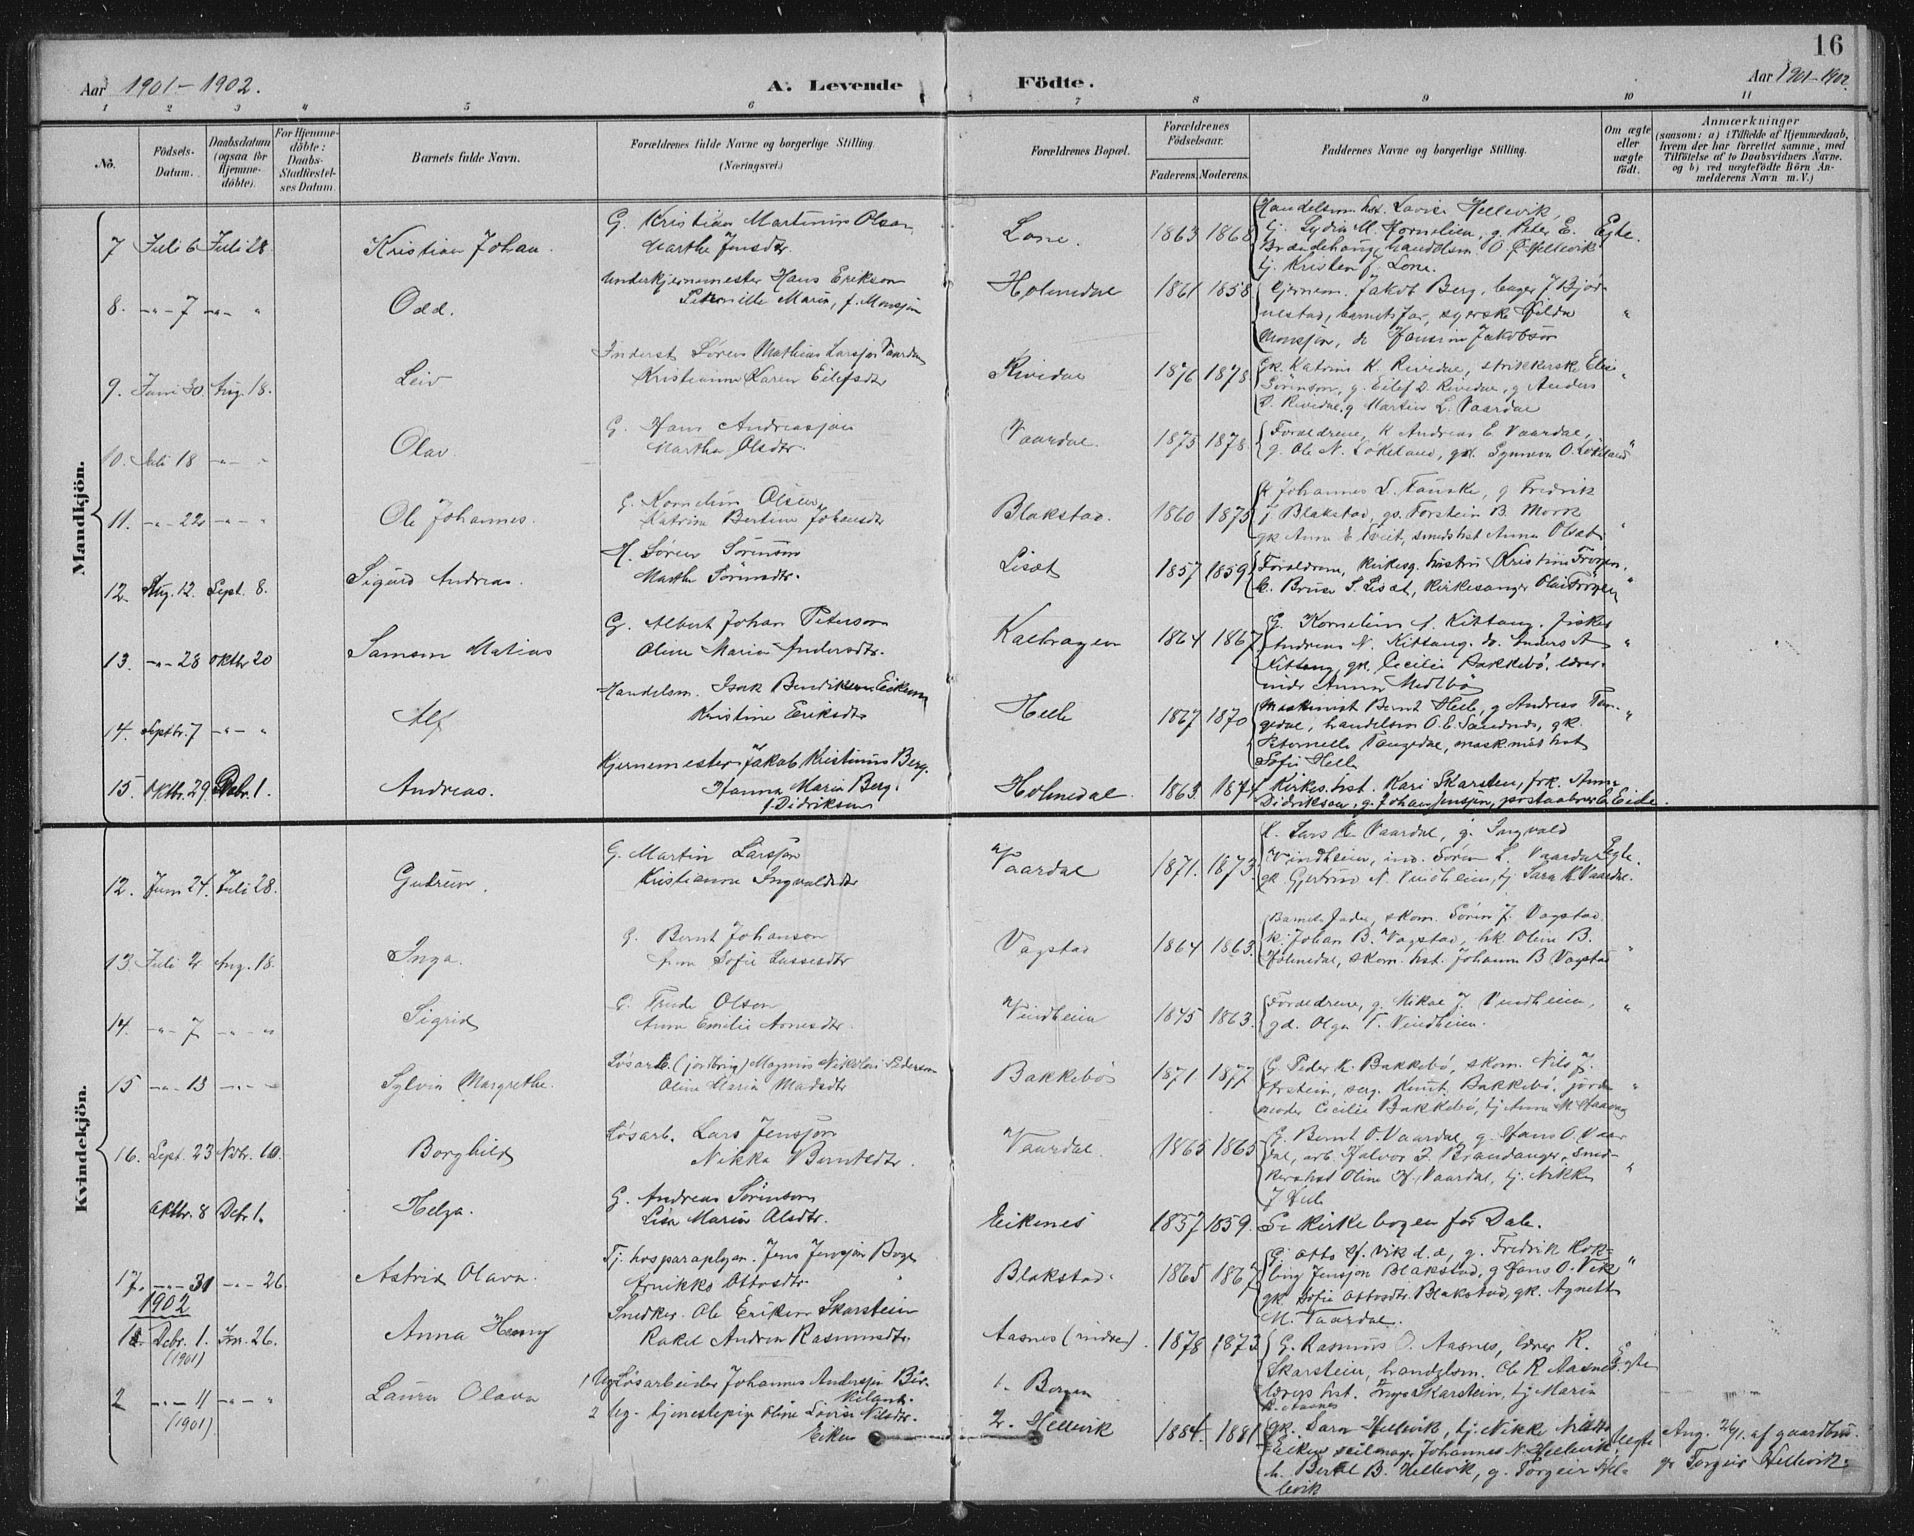 16
Aar 1901-1902.
A. Levende Födte.
Aar 1901-1902.
1 2 3 4 5 6 7 8 9 10 11
No.
Födsels-Datum.
Daabsdatum (ogsaa for Hjemmedöbte).
For Hjemmedöbte: Daabs-Stadfæstelses Datum.
Barnets fulde Navn.
Forældrenes fulde Navne og borgerlige Stilling. (Næringsvei.)
Forældrenes Bopæl.
Forældrenes Födselsaar.
Faderens. Moderens.
Faddernes Navne og borgerlige Stilling.
Om ægte eller uægte födt.
Anmærkninger
(saasom: a) i Tilfælde af Hjemmedaab,
hvem der har forrettet samme, med
Tilföielse af to Daabsvidners Navne.
og b) ved uægtefödte Börn An-
melderens Navn m. V.)
Mandkjön.
7 Juli 6 Juli 28. Kristian Johan. G. Kristian Martinus Olson Marthe Jensdtr. Lone. 1863 1868
Handelsm. hst. Lovise Hellevik, tj. Lydia M. Kornelien, g. Peter E. Egte.
Brændehauge, handelsm. O. Hellevik
tj. Kristen J. Lone.
8. -"- 7 -"- " Odd. Underkjernemester Hans Erikson Petronille Marie, f. Monsjon Holmedal 1861 1858
Kjernem. Jakob Berg, bager J. Bjød-
nestad, barnets far, syerske Hilda "
Monsjon, do Hansine Jakobson
9. Juni 30 Aug. 18. Leiv Inderst Søren Mathias Larsjon Vaardal Kristianne Karen Eilefsdtr Rivedal 1876 1878
gk. Katrine K. Rivedal, strikkerske Elise "
Sørinson, g. Eilef D. Rivedal, g Anders
D. Rivedal, g Martin L. Vaardal
10. Juli 18 -"- " Olav G. Hans Andreasjon Martha Olsdtr. Vaardal. 1875 1878.
Forældrene, K Andreas E. Vaardal,
g. Ole N. Løkeland, gk. Synneva O. Løkeland "
11. -"- 22 -"- " Ole Johannes. G. Kornelius Olson Katrina Bertine Johansdtr Blakstad. 1860 1875
K Johannes L. Tanske, g Fredrik
J Blakstad, gs. Torstein B. Mork
gk Anna E Tveit, smedshst Anna Olsdtr
12. Aug. 12. Sept. 8. Sigurd Andreas. H. Søren Sørinson Marthe Sørinsdtr. Lisæt 1857 1859
Forældrene, kirkesg. hustru Kristine Frøyen,
S. Lisæt, kirkesanger Frøyen "
13. -"- 28 Oktbr 20 Samson Matias G. Albert Johan Peterson Oline Marie Andersdtr. Kalhagen 1864 1867
G. Kornelius A. Kittang, fisker
Andreas N. Kittang, do. Anders A "
Kittang, gk. Cecilie Bakkebø, lærer-
inde Anna Medlbø
14. Septbr. 7 -"- " Alf Handelsm. Isak Bendikson Eikenes Kristine Eriksdtr Helle 1867 1870
Maskinist Bernt Helle, g Andreas Tan- "
gedal, handelsm O. E. Sandnes, gk.
Peternelle Tangedal, maskinist hst
Sofie Helle
15. Oktbr. 29 Debr. 1. Andreas. Kjernemester Jakob Kristinus Berg. Hanna Marie Berg. f. Didriksen Holmedal. 1863. 1874
Kirkes. hst. Kari Skarstein, frk. Anna
Didriksen, g. Johan Jensjon, postaabner Eide.
Kvindekjön.
12. Juni 24. Juli 28. Gudrun. G. Martin Larsjon Kristianna Ingvaldsdtr Vaardal 1871. 1873.
K. Lars K. Vaardal, g. Ingvald
Vindheim, ind. Søren L. Vaardal Egte.
gk. Gjertrud N. Vindheim, tj Sara K Vaardal.
13. Juli 2 Aug. 18. Inga. G. Bernt Johanson Sofie Lassesdtr Vagstad 1864 1863.
Barnets fader, skom. Søren J. Vagstad
K. Johan B. Vagstad, hk Oline B.
Holmedal, skom. hst. Johanna B Vagstad "
14. -"- 7 -"- " Sigrid G. Trude Olson Anna Emilie Arnesdtr. Vindheim 1845 1863.
Forældrene, g. Mikal J. Vindheim, "
gd. Olga T. Vindheim.
15 -"- 13 -"- " Sylvia Margrethe. Løsarb. Magnus Nikolai Pederson Oline Maria Madsdtr Bakkebø 1871 1877
G. Peder K. Bakkebø, skom. Nils J.
Arstein, serg. Knut Bakkebø, jorde "
moder Cecilie Bakkebø, tj Anna M. Haavag
16. Sept. 23 Nvbr. 10. Borghild Løsarb. Lars Jensjon Nikka Berntsdtr. Vaardal. 1865 1865
G. Bernt O. Vaardal, g. Hans O Vaar
dal, arb. Halvor J. Brandanger, Sned- "
kershst Oline H. Vaardal, tj. Nikka
Oktbr. 8 Debr 1. Helga. G. Andreas Sørinson Lisa Marie Olsdtr. Eikenes 1857 1859. Se kirkebogen for Dale.
17. -"- 31 -"- 26. Astrid Olava. Tj. hos paraplym. Jens Jensjon Arnikka Ottosdtr Blakstad. 1865 1867
G. Otto H. Vik d. æ, g. Fredrik Kok- "
ling Jensjon Blakstad, g Hans O. Vik
gk. Sofie Ottosdtr. Blakstad, gk. Agnete
M. Vaardal.
1902
1 Debr. 1. Jan. 26. (1901) Anna Henny Snedker. Ole Erikson Skarstein Rakel Andrea Rasmusdtr. Aasnes (indre) 1878 1873
G. Rasmus O. Aasnes, lærer R.
Skarstein, handelsm. Ole R Aasnes. Egte
lærers hst. Inga Skarstein, tj Maria
R. Aasnes
2 -"- 11 -"- " (1901) Laura Olava 1 Ug Løsarbeider Johannes Andersjon Bir- 1. Bergen
2 Ug- tjenestepige Oline Lovise Nilsdtr. Eiken 2. Hellevik 1884. 1881
gk. Sara Hellevik, tj. Nikka Nilsdtr Uegte Ang. 26/1. af gaardbrs.
Eiken seilmager Johannes N. Hellevik, gr Torgeir Hellevik.
h. Bertel B. Hellevik, g. Torgeir Hel-
levik